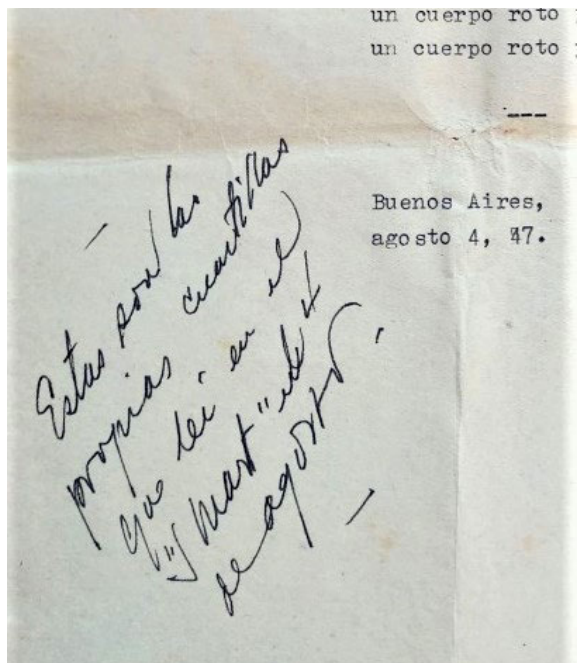 un cuerpo roto
un cuerpo roto
---
Buenos Aires,
agosto 4, 47.
— Estas son las
propias cuartillas
que leí en el
"S Mart" el 4
de agosto. —